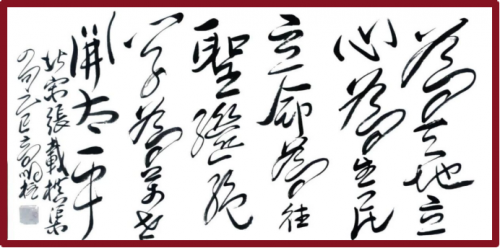 為天地立
心為生民
立命為往
聖繼絕
學為萬世
開太平
北宋張載橫渠
四句